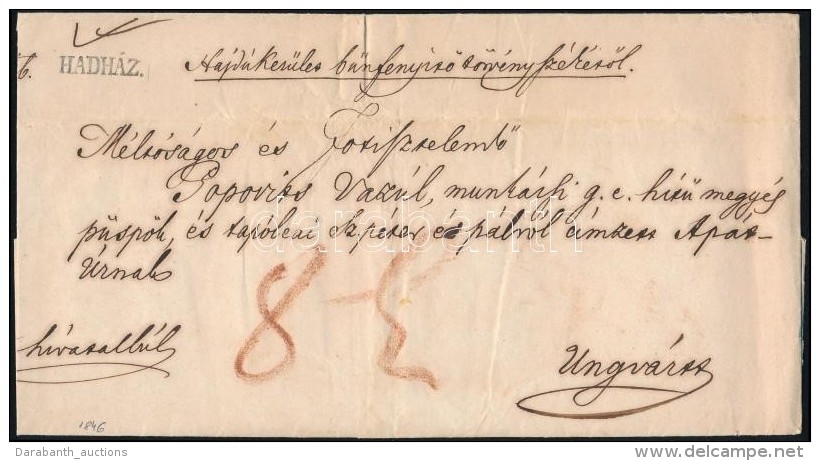 HADHÁZ.
Hajdúkerület bűnfenyitő törvény székétől.
Méltóságos és Főtisztelendő
Popovits Vazúl, munkácsi g. e. hitű megyés
püspök, és tapolcai Sz péter és pálról címzett Apát-
Úrnak
8
hivatalból
Ungvártt
1846
Darabanth_auctions
www.delcampe.net